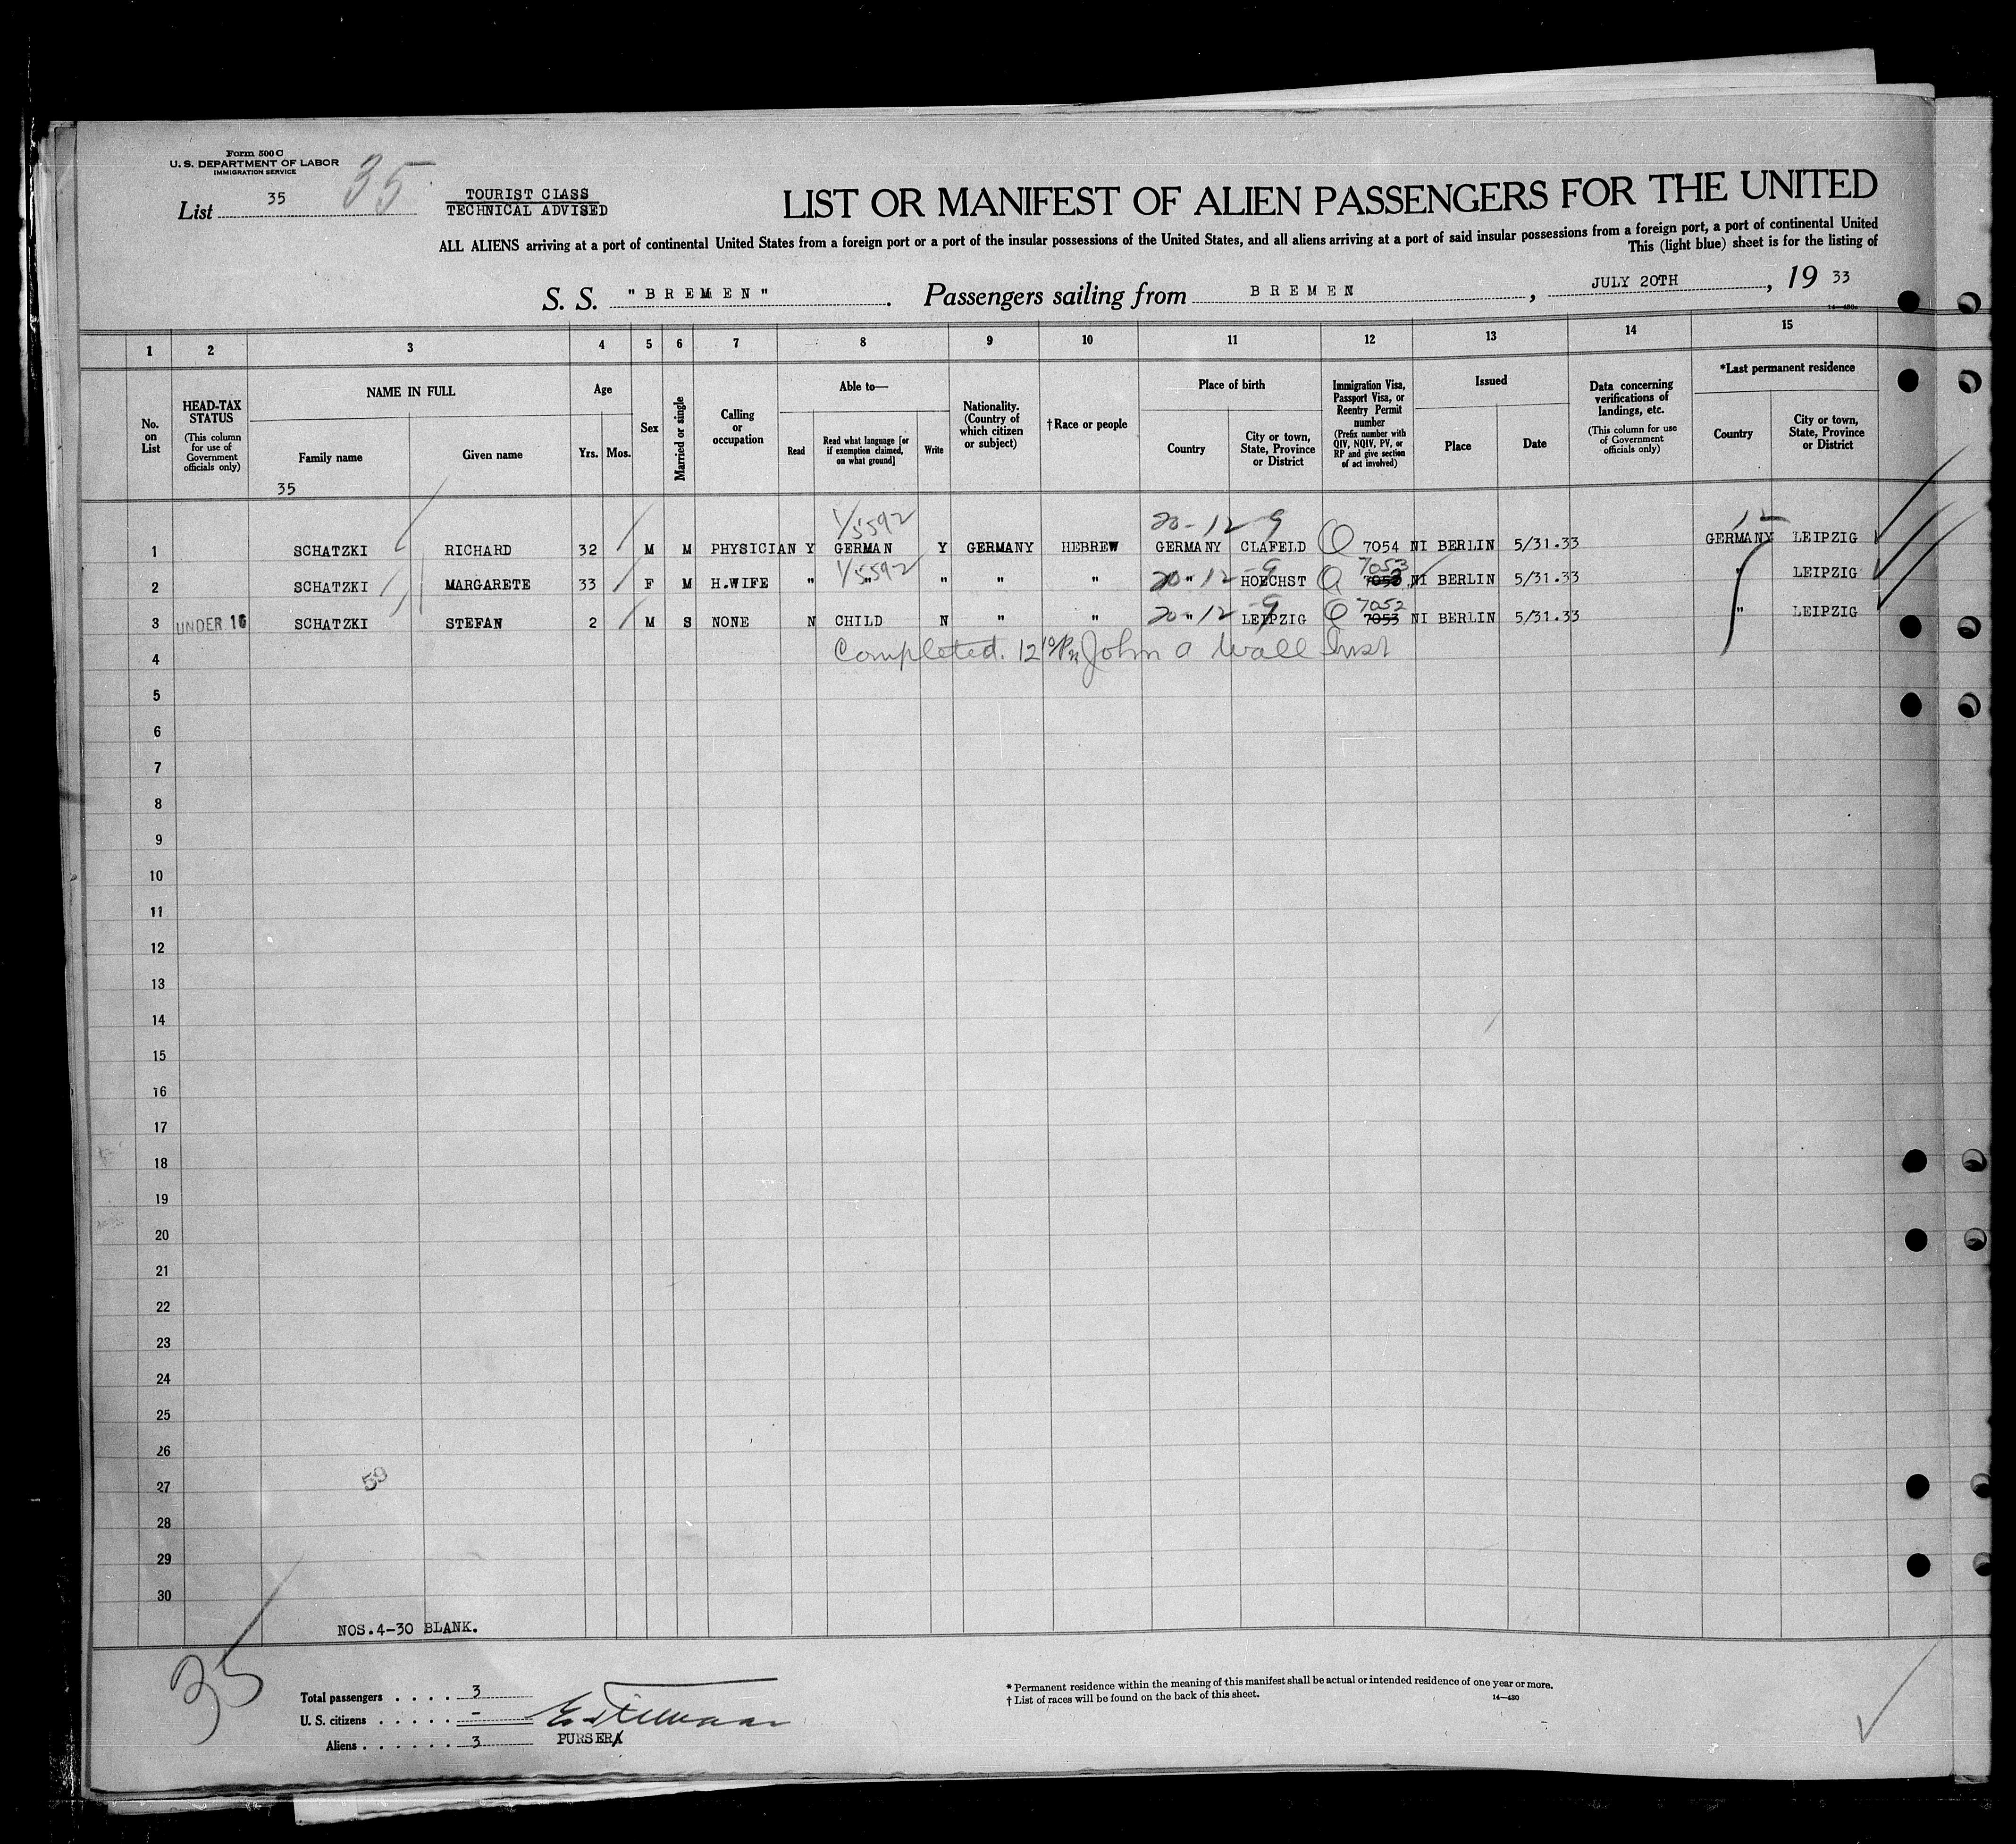 Form 500 C
U. S. DEPARTMENT OF LABOR
IMMIGRATION SERVICE
List 35
35
TOURIST CLASS
TECHNICAL ADVISED
LIST OR MANIFEST OF ALIEN PASSENGERS FOR THE UNITED
ALL ALIENS arriving at a port of continental United States from a foreign port or a port of the insular possessions of the United States, and all aliens arriving at a port of said insular possessions from a foreign port, a port of continental United
This (light blue) sheet is for the listing of
S. S. "BREMEN". Passengers sailing from BREMEN, JULY 20TH, 19 33
14—430a
1 2 3 4 5 6 7 8 9 10 11 12 13 14 15
No. on List
HEAD-TAX STATUS (This column for use of Government officials only)
NAME IN FULL
Family name
Given name
35
Age
Yrs. Mos.
Sex
Married or single
Calling or occupation
Able to—
Read
Read what language [or if exemption claimed, on what ground]
Write
Nationality. (Country of which citizen or subject)
†Race or people
Place of birth
Country
City or town, State, Province or District
Immigration Visa, Passport Visa, or Reentry Permit number (Prefix number with QIV, NQIV, PV, or RP and give section of act involved)
Issued
Place
Date
Data concerning verifications of landings, etc. (This column for use of Government officials only)
*Last permanent residence
Country
City or town, State, Province or District
1/5592 20-12-9 12
1 SCHATZKI RICHARD 32 M M PHYSICIAN Y GERMAN Y GERMANY HEBREW GERMANY CLAFELD Q 7054 NI BERLIN 5/31.33 GERMANY LEIPZIG
1/5592 20-12-9 7053
2 SCHATZKI MARGARETE 33 F M H.WIFE " " " " " " HOECHST Q 7052 NI BERLIN 5/31.33 " LEIPZIG
20-12-9 7052
3 UNDER 16 SCHATZKI STEFAN 2 M S NONE N CHILD N " " " LEIPZIG Q 7053 NI BERLIN 5/31.33 " LEIPZIG
4 Completed. 12 10 PM John A Wall Insp
5
6
7
8
9
10
11
12
13
14
15
16
17
18
19
20
21
22
23
24
25
26
27
59
28
29
30
NOS.4-30 BLANK.
35
Total passengers . . . . 3
U. S. citizens . . . . . -
Aliens . . . . . . 3
PURSER
* Permanent residence within the meaning of this manifest shall be actual or intended residence of one year or more.
† List of races will be found on the back of this sheet.
14—430